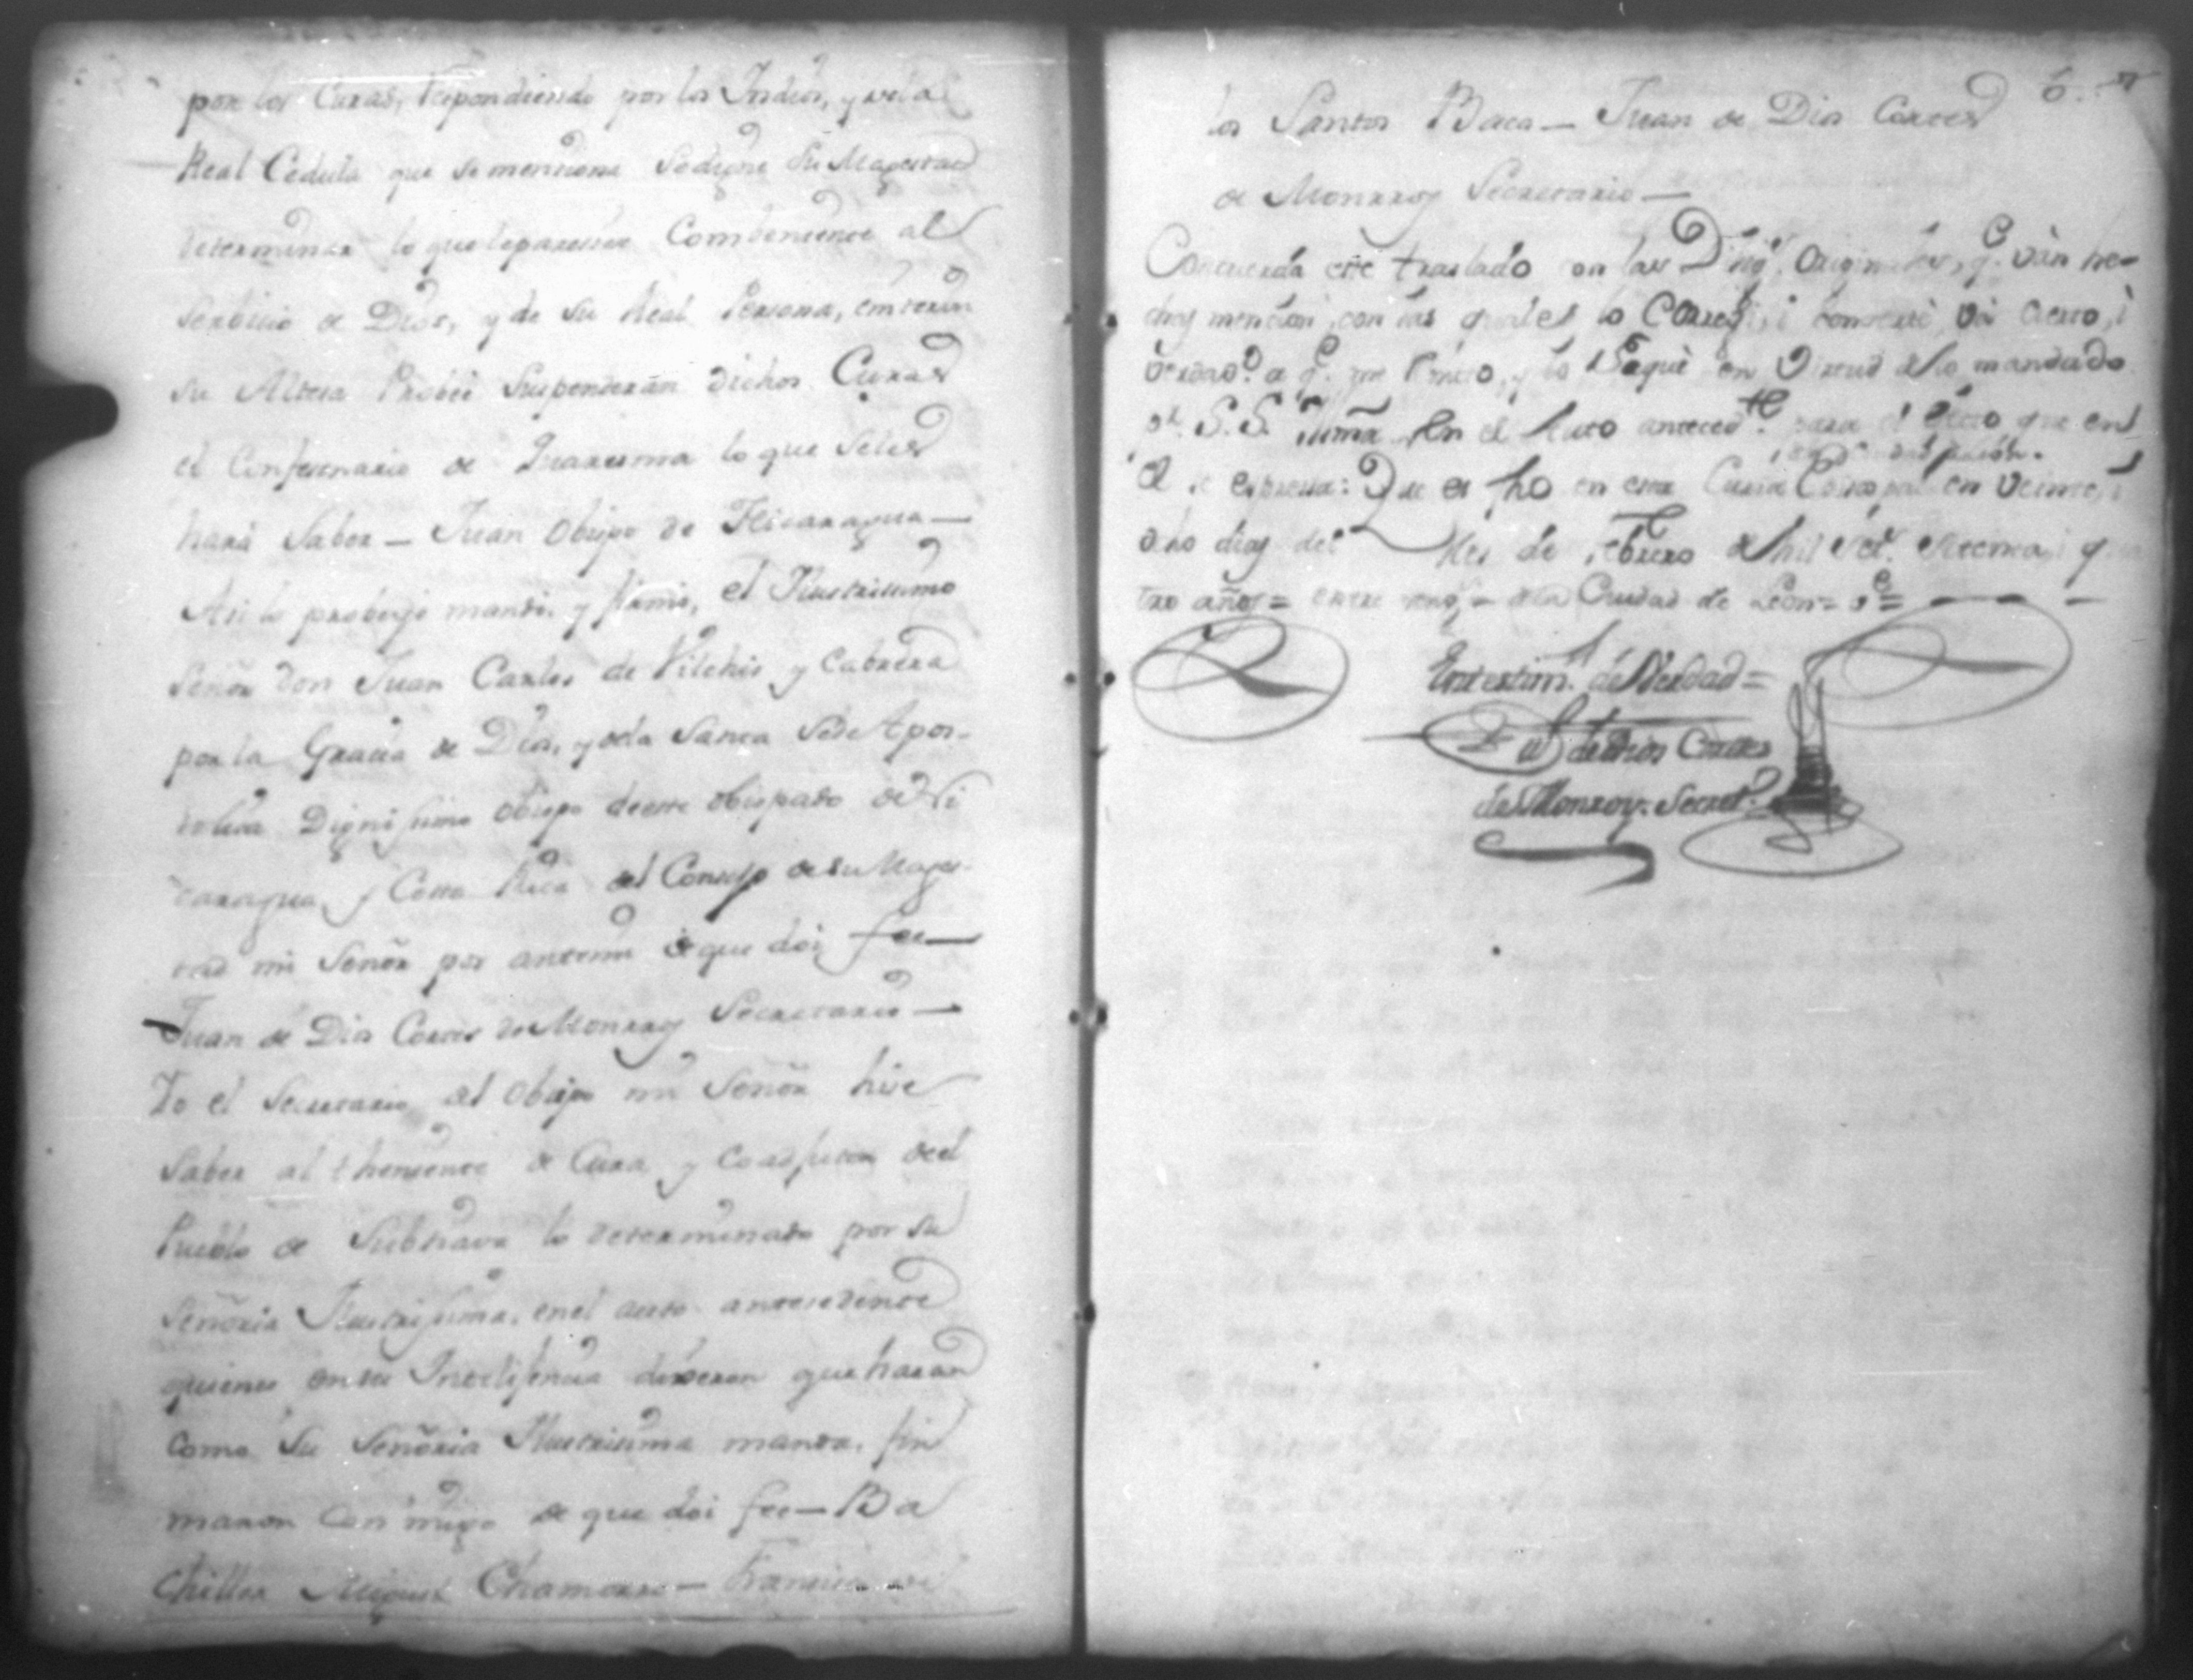 por los Curas, respondiendo por los Indios, y vela
Real Cedula que se menciona se digne Su Magestad
determinar lo que le paresiere Combeniente al
serbicio de Dios, y de su Real Persona, interin
su Altesa Probee suspenderan dichos Curas
el Confesonario de Quaresma lo que seles
hará saber — Juan Obispo de Nicaragua —
Asi lo proberjo mandó, y firmó, el Ilustrisimo
Señor don Juan Carlos de Vilchis y Cabrera
por la Gracia de Dios, y dela Santa Sede Apos-
tolica Dignisimo Obispo deeste obispado de Ni
caragua, y Costa Rica del Consejo de su Mages-
tad mi Señor por antemi de que doi fee —
Juan de Dios Cortes de Monrroy Secretario —
Yo el Secretario del Obispo mi Señor hise
saber al theniente de Cura y Coadjutor deel
Pueblo de Subtiava lo determinado por su
Señoria Ilustrisima, enel auto antesedente
quienes en su Inteligencia dixeron que haran
como su Señoria Ilustrisima manda, fir
maron con migo de que doi fee — Ba
chiller Miguel Chamorro — Francisco de
6.
los Santos Baca — Juan de Dios Cortes
de Monrroy Secretario —
Concuerda este traslado con las Dilig.s Originales, q.e ván he-
chas mencion, con las quales lo Correji, i concerté, vá cierto, i
verdad.o a q.e me remito, y lo saqué en Virtud de lo mandado
p.r S.S. Ilma en el Auto anteced.te para el efecto que en
el se expresa: Que es fho en esta Curia Episcopal en veinte, i
ocho dias del Mes de Febrero de mil set.s setenta, i qua
tro años = entre reng.s = dela Ciudad de León = v.e =
En testim.o de Verdad =
Ju.n de Dios Cortes
de Monroy. Secret.o